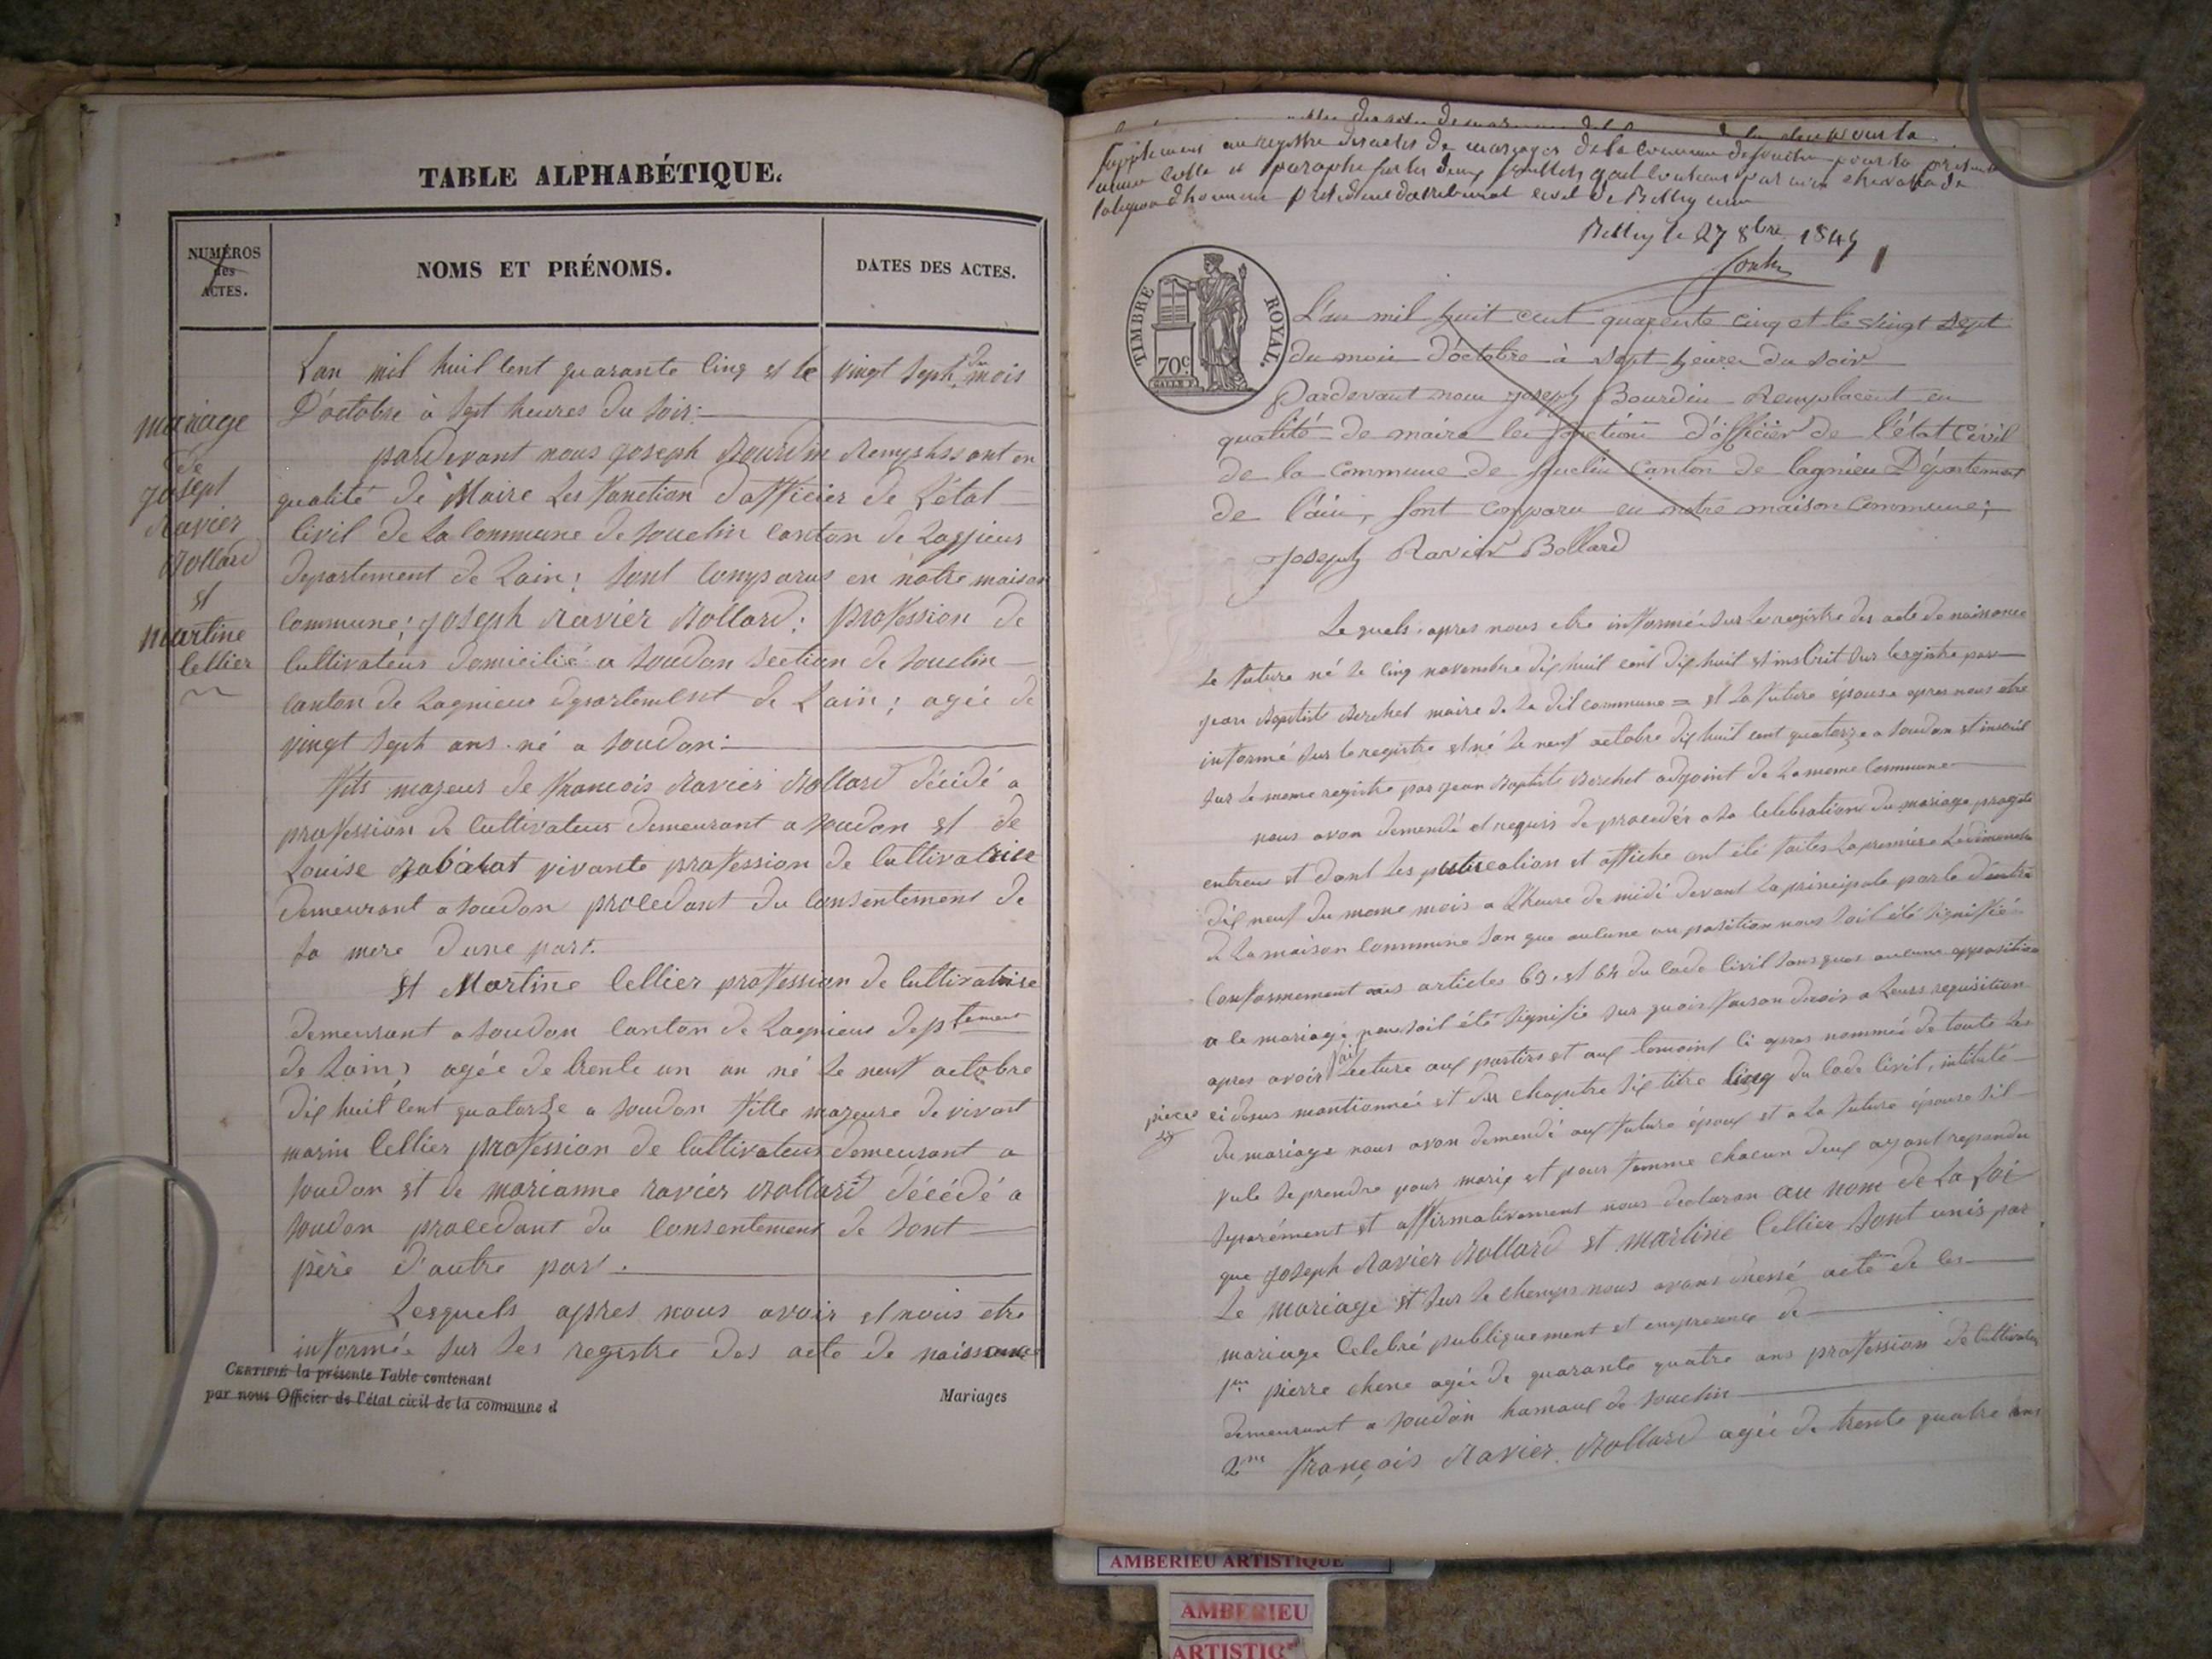 TABLE ALPHABÉTIQUE.
NUMÉROS
des
ACTES.
NOMS ET PRÉNOMS.
DATES DES ACTES.
mariage
de
joseph
Ravier
Bollard
et
martine
Cellier
L'an mil huit cent quarante cinq et le vingt sept du mois
D'octobre à sept heures du soir:
pardevant nous joseph Bourdin Remplissant en
qualité de Maire Les fonction d'officier de L'état
Civil de La Commune de Souclin canton de Lagnieux
departement de Lain; sont Comparus en notre maison
Commune; joseph Ravier Bollard; profession de
Cultivateur domicilié a Soudon Section de Souclin
canton de Lagnieux departement de Lain; agée de
vingt sept ans né a Soudon:
fils majeur de francois Ravier Bollard décédé a
profession de Cultivateur demeurant a Soudon et de
Louise vivante profession de Cultivatrice
demeurant a Soudon procedant du Consentement de
sa mere d'une part.
et Martine Cellier profession de Cultivatrice
demeurant a Soudon Canton de Lagnieux deptement
de Lain, agée de trente un an né le neuf octobre
dix huit cent quatorze a Soudon fille majeure de vivant
marin Cellier profession de Cultivateur demeurant a
Soudon et de marianne ravier Bollard décédé a
Soudon procedant du Consentement de sont
père d'autre part.
Lesquels apres nous avoir et nous etre
informée sur les registre des acte de naissance
CERTIFIÉ la présente Table contenant
par nous Officier de l'état civil de la commune d
Mariages
Supplement au registre des actes de mariages de la commune de Souclin pour la présente
année cotté et paraphé sur les deux feuillets quil contient par nous chevalier de
la legion d'honneur président du tribunal civil de Belley
Belley le 27 8bre 1845
1
TIMBRE ROYAL.
70c
L'an mil huit cent quarente cinq et le vingt sept
du mois d'octobre à sept heures du soir
Pardevant nous joseph Bourdin Remplacent en
qualité de maire les fonction d'officier de l'état Civil
de la commune de Souclin Canton de lagnieu Département
de l'ain, sont comparu en notre maison Commune;
joseph Ravier Bollard
Lequels apres nous etre informée sur Le registre des acte de naissance
Le future né le cinq novembre dix huit cent dix huit et inscrit sur le registre par
jean Baptiste Berchet maire de La dit commune = et La future épouse apres nous etre
informé sur le registre et né le neuf octobre dix huit cent quatorze a Soudon et inscrit
sur le meme registre par jean Baptiste Berchet adjoint de La meme Commune
nous avon demendé et requis de procedér a La Celebration du mariage projeté
entreux et dont les publication et affiche ont été faites La premiére Le dimanche
dix neuf du meme mois a L'heure de midi devant La principale porte d'entré
de La maison Commune san que aucune oposition nous soit été signifié
Conformement aus articles 63 et 64 du Code Civil sans que aucune opposition
a le mariage nous soit été signifié sur quois faison droix a Leurs requisition
apres avoir fait Lecture aux partires et aux temoins ci apres nommée de toute Les
pieces
ci desus mantionnée et du chapitre six titre Cinq du Code Civil, intitulé
du mariage nous avon demendé aux future époux et a La future épouse sil
vule se prendre pour marix et pour femme chacun deux ayant repondu
Separément et affirmativement nous declaron au nom de La Loi
que joseph Ravier Bollard et martine Cellier sont unis par
Le mariage et sur le champs nous avons dressé acte de ces
mariage Celebré publiquement et en presence de
1er pierre chene agée de quarante quatre ans profession de Cultivateur
demeurant a Soudon hamaux de Souclin
2me françois Ravier Bollard agée de trente quatre ans
AMBERIEU ARTISTIQUE
AMBERIEU
ARTISTIQ